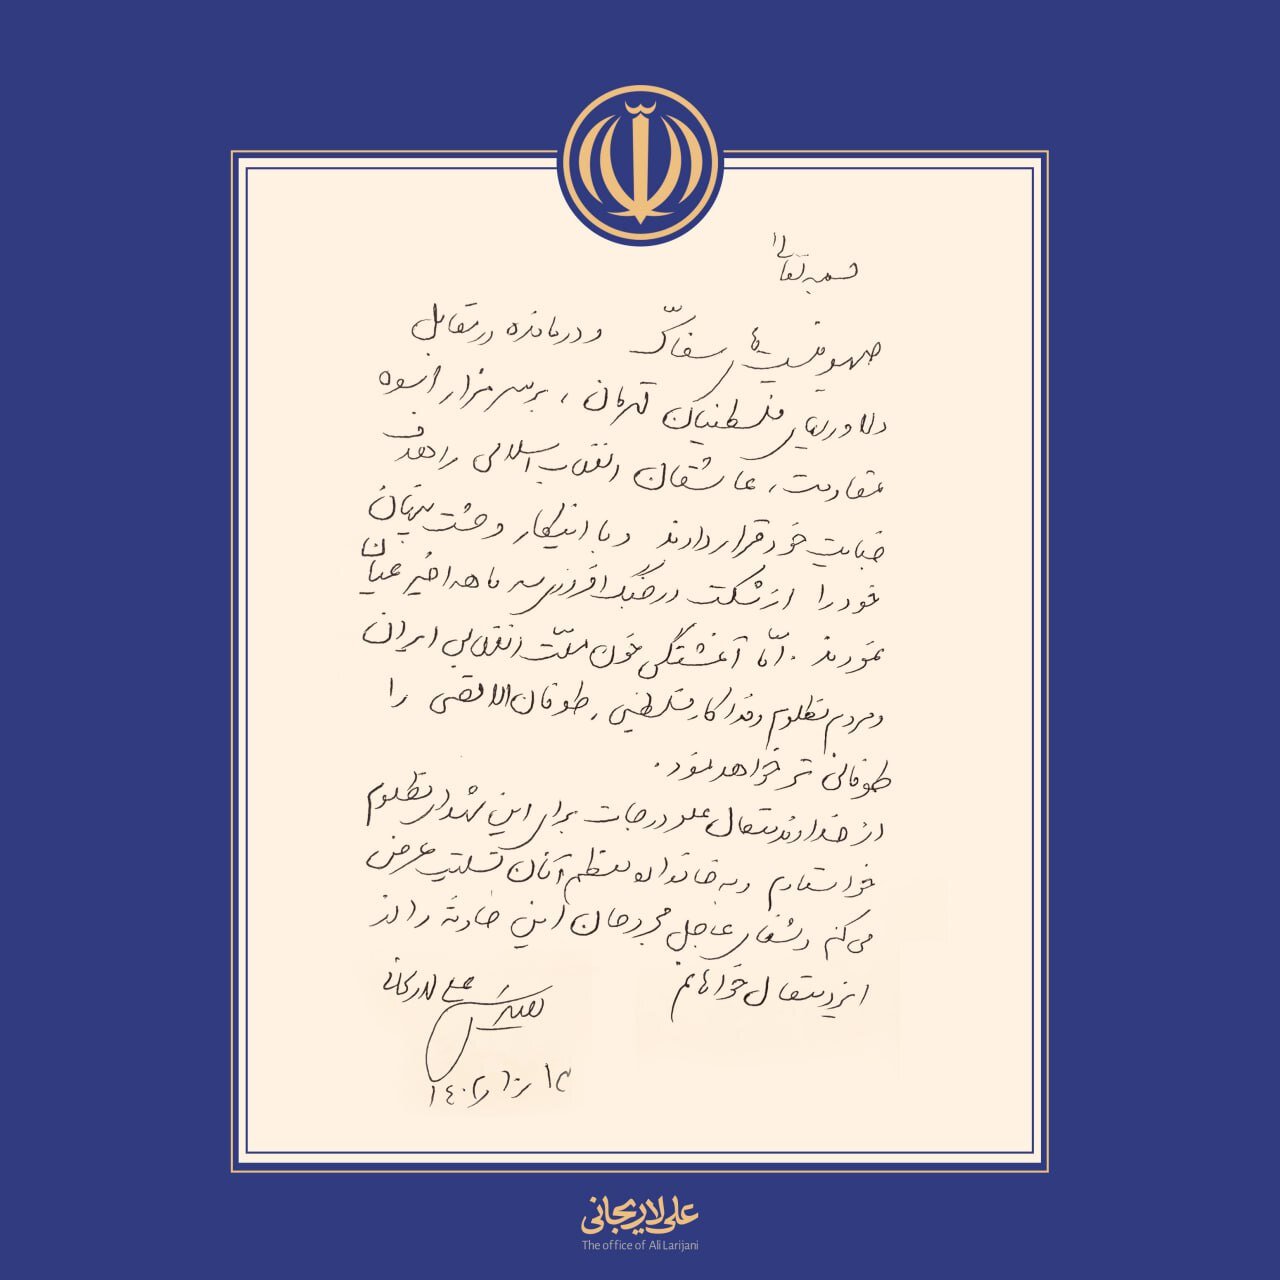 بسمه تعالی
صهیونیست‌های سفاک و درمانده در مقابل
دلاوریهای فلسطینیان قهرمان، بر سر مزار اسوه
مقاومت، عاشقان انقلاب اسلامی را هدف
خباثت خود قرار دادند و با اینکار وحشت پنهان
خود را از شکست در جنگ افروزی سه ماهه اخیر عیان
نمودند. امّا آغشتگی خون ملّت انقلابی ایران
و مردم مظلوم و فداکار فلسطینی، طوفان الاقصی را
طوفانی تر خواهد نمود.
از خداوند متعال علو درجات برای این شهدای مظلوم
خواستارم و به خانواده معظم آنان تسلیت عرض
می‌کنم و شفای عاجل مجروحان این حادثه را از
ایزد متعال خواهانم
علی لاریجانی
۱۴۰۲/۱۰/۱۳
علی لاریجانی
The office of Ali Larijani